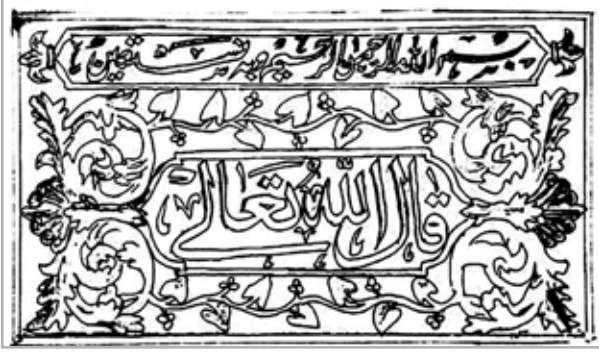 بسم الله الرحمن الرحيم وبه نستعين
قال الله تعالى